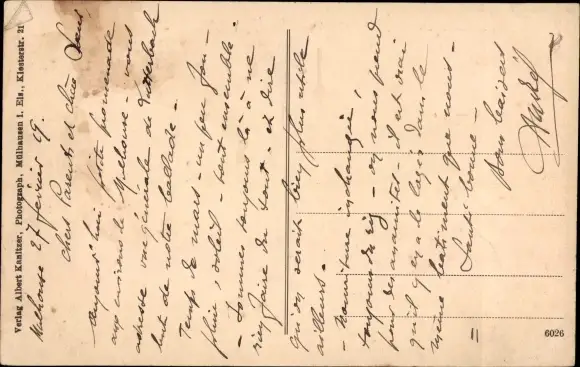 Verlag Albert Kanitzer, Photograph, Mülhausen i. Els., Klosterstr. 21
Mulhouse 27 février 19.
chers Parents et chère Soeur
Aujourd'hui petite promenade
aux environs de Mulhouse - vous
adresse vue générale de Lutterbach
but de notre ballade -
Temps de mars - un peu jour -
pluie, soleil - tout ensemble -
- sommes toujours là à ne
rien faire du tout - et dire
qu'on serait bien plus utile
ailleurs -
- Nourriture inchangée !
toujours du riz - on nous prend
pour des annamites - il est vrai
qu'il y en a de logés dans le
même batiment que nous -
= Santé bonne -
bons baisers
6026